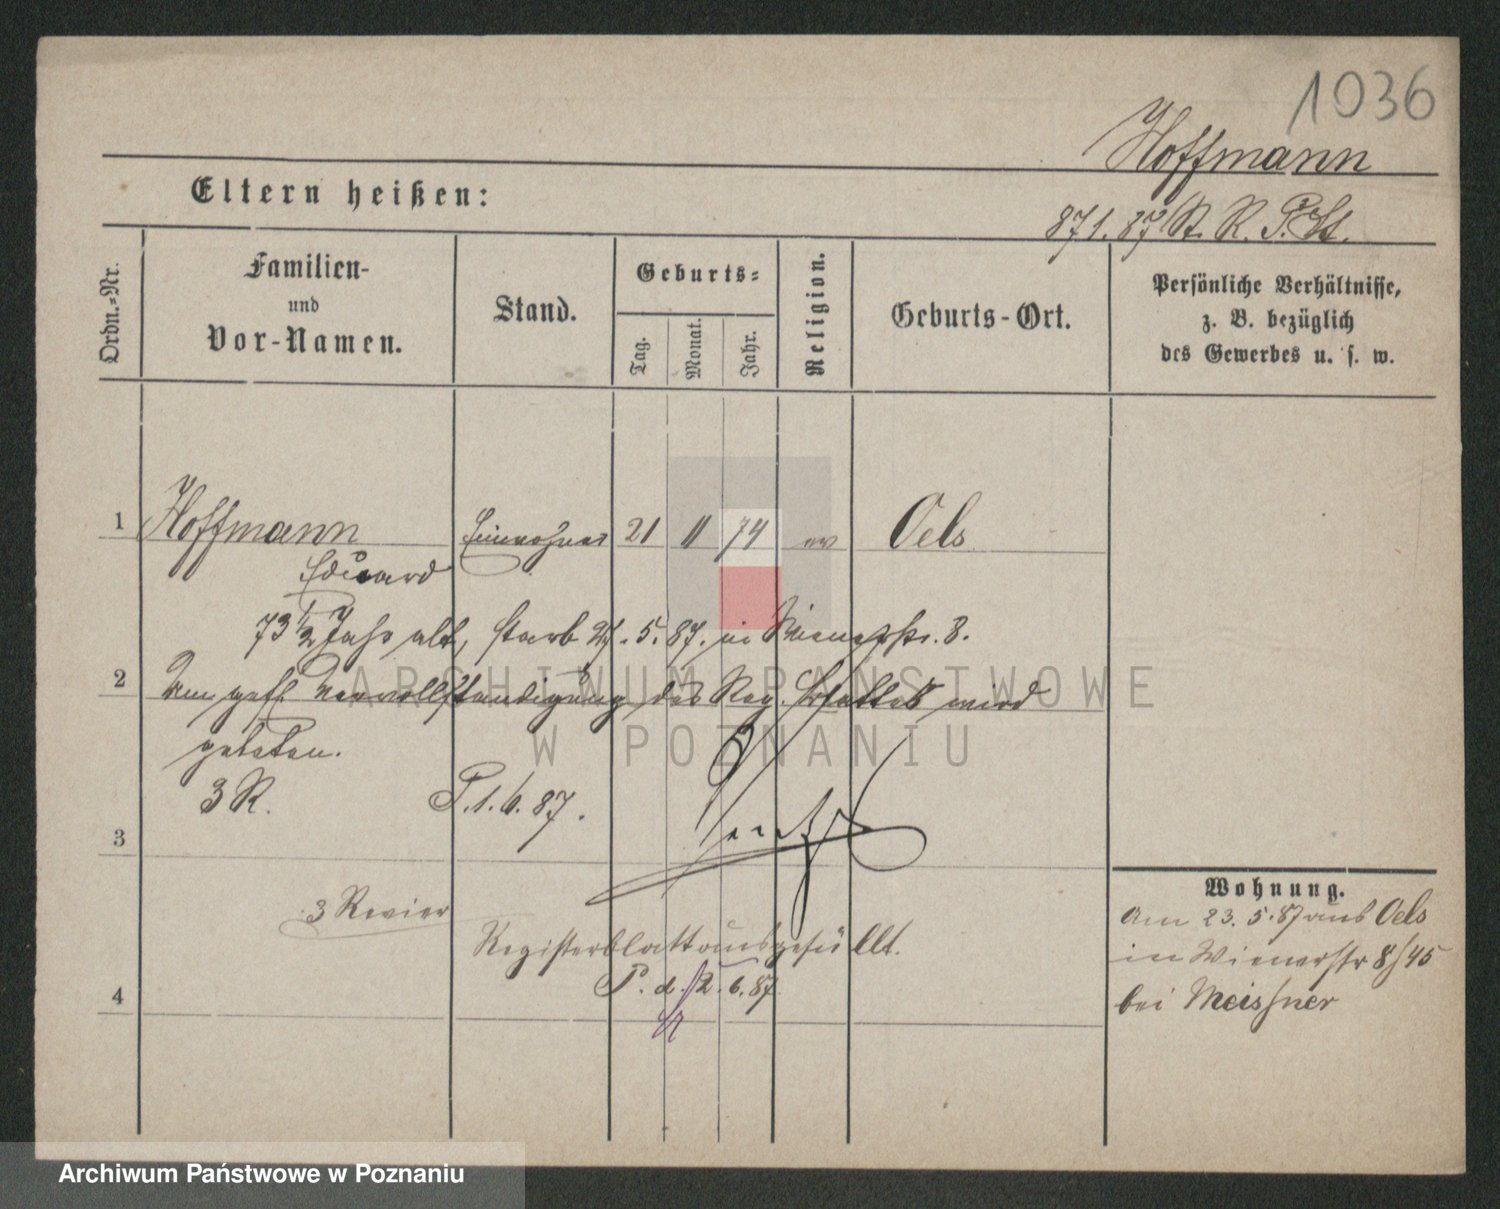 1036
Hoffmann
Eltern heißen:
871. 87 St. R. P. St.
Ordn.-Nr.
Familien-
und
Vor-Namen.
Stand.
Geburts-
Tag.
Monat.
Jahr.
Religion.
Geburts-Ort.
Persönliche Verhältnisse,
z. B. bezüglich
des Gewerbes u. s. w.
1 Hoffmann Einwohner 21 11 74 ev Oels
Eduard
73 1/2 Jahr alt, starb 27. 5. 87. in Wienerstr. 8.
2 Um gefl. Vervollständigung des Reg. blattes wird
gebeten.
3 R. P. 1. 6. 87.
3
Wohnung.
3 Revier
Am 23. 5. 87 aus Oels
in Wienerstr 8/45
bei Meissner
Registerblatt ausgefüllt.
P. d. 2. 6. 87
4
ARCHIWUM PAŃSTWOWE
W POZNANIU
Archiwum Państwowe w Poznaniu